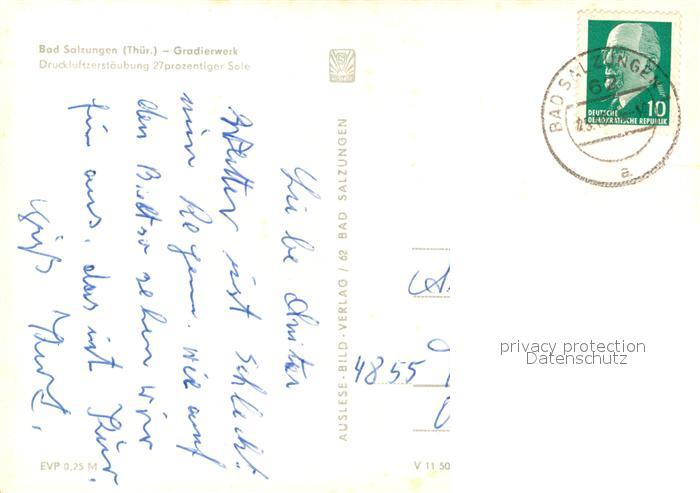 Bad Salzungen (Thür.) – Gradierwerk
Druckluftzerstäubung 27prozentiger Sole
Liebe
Wetter ist schlecht
nur Regen. wie auf
den Bild so sehen wir
für aus, das ist Kur.
Gruß
AUSLESE-BILD-VERLAG / 62 BAD SALZUNGEN
EVP 0,25 M
V 11 50
4855
BAD SALZUNGEN
62
a
10
DEUTSCHE
DEMOKRATISCHE REPUBLIK
privacy protection
Datenschutz